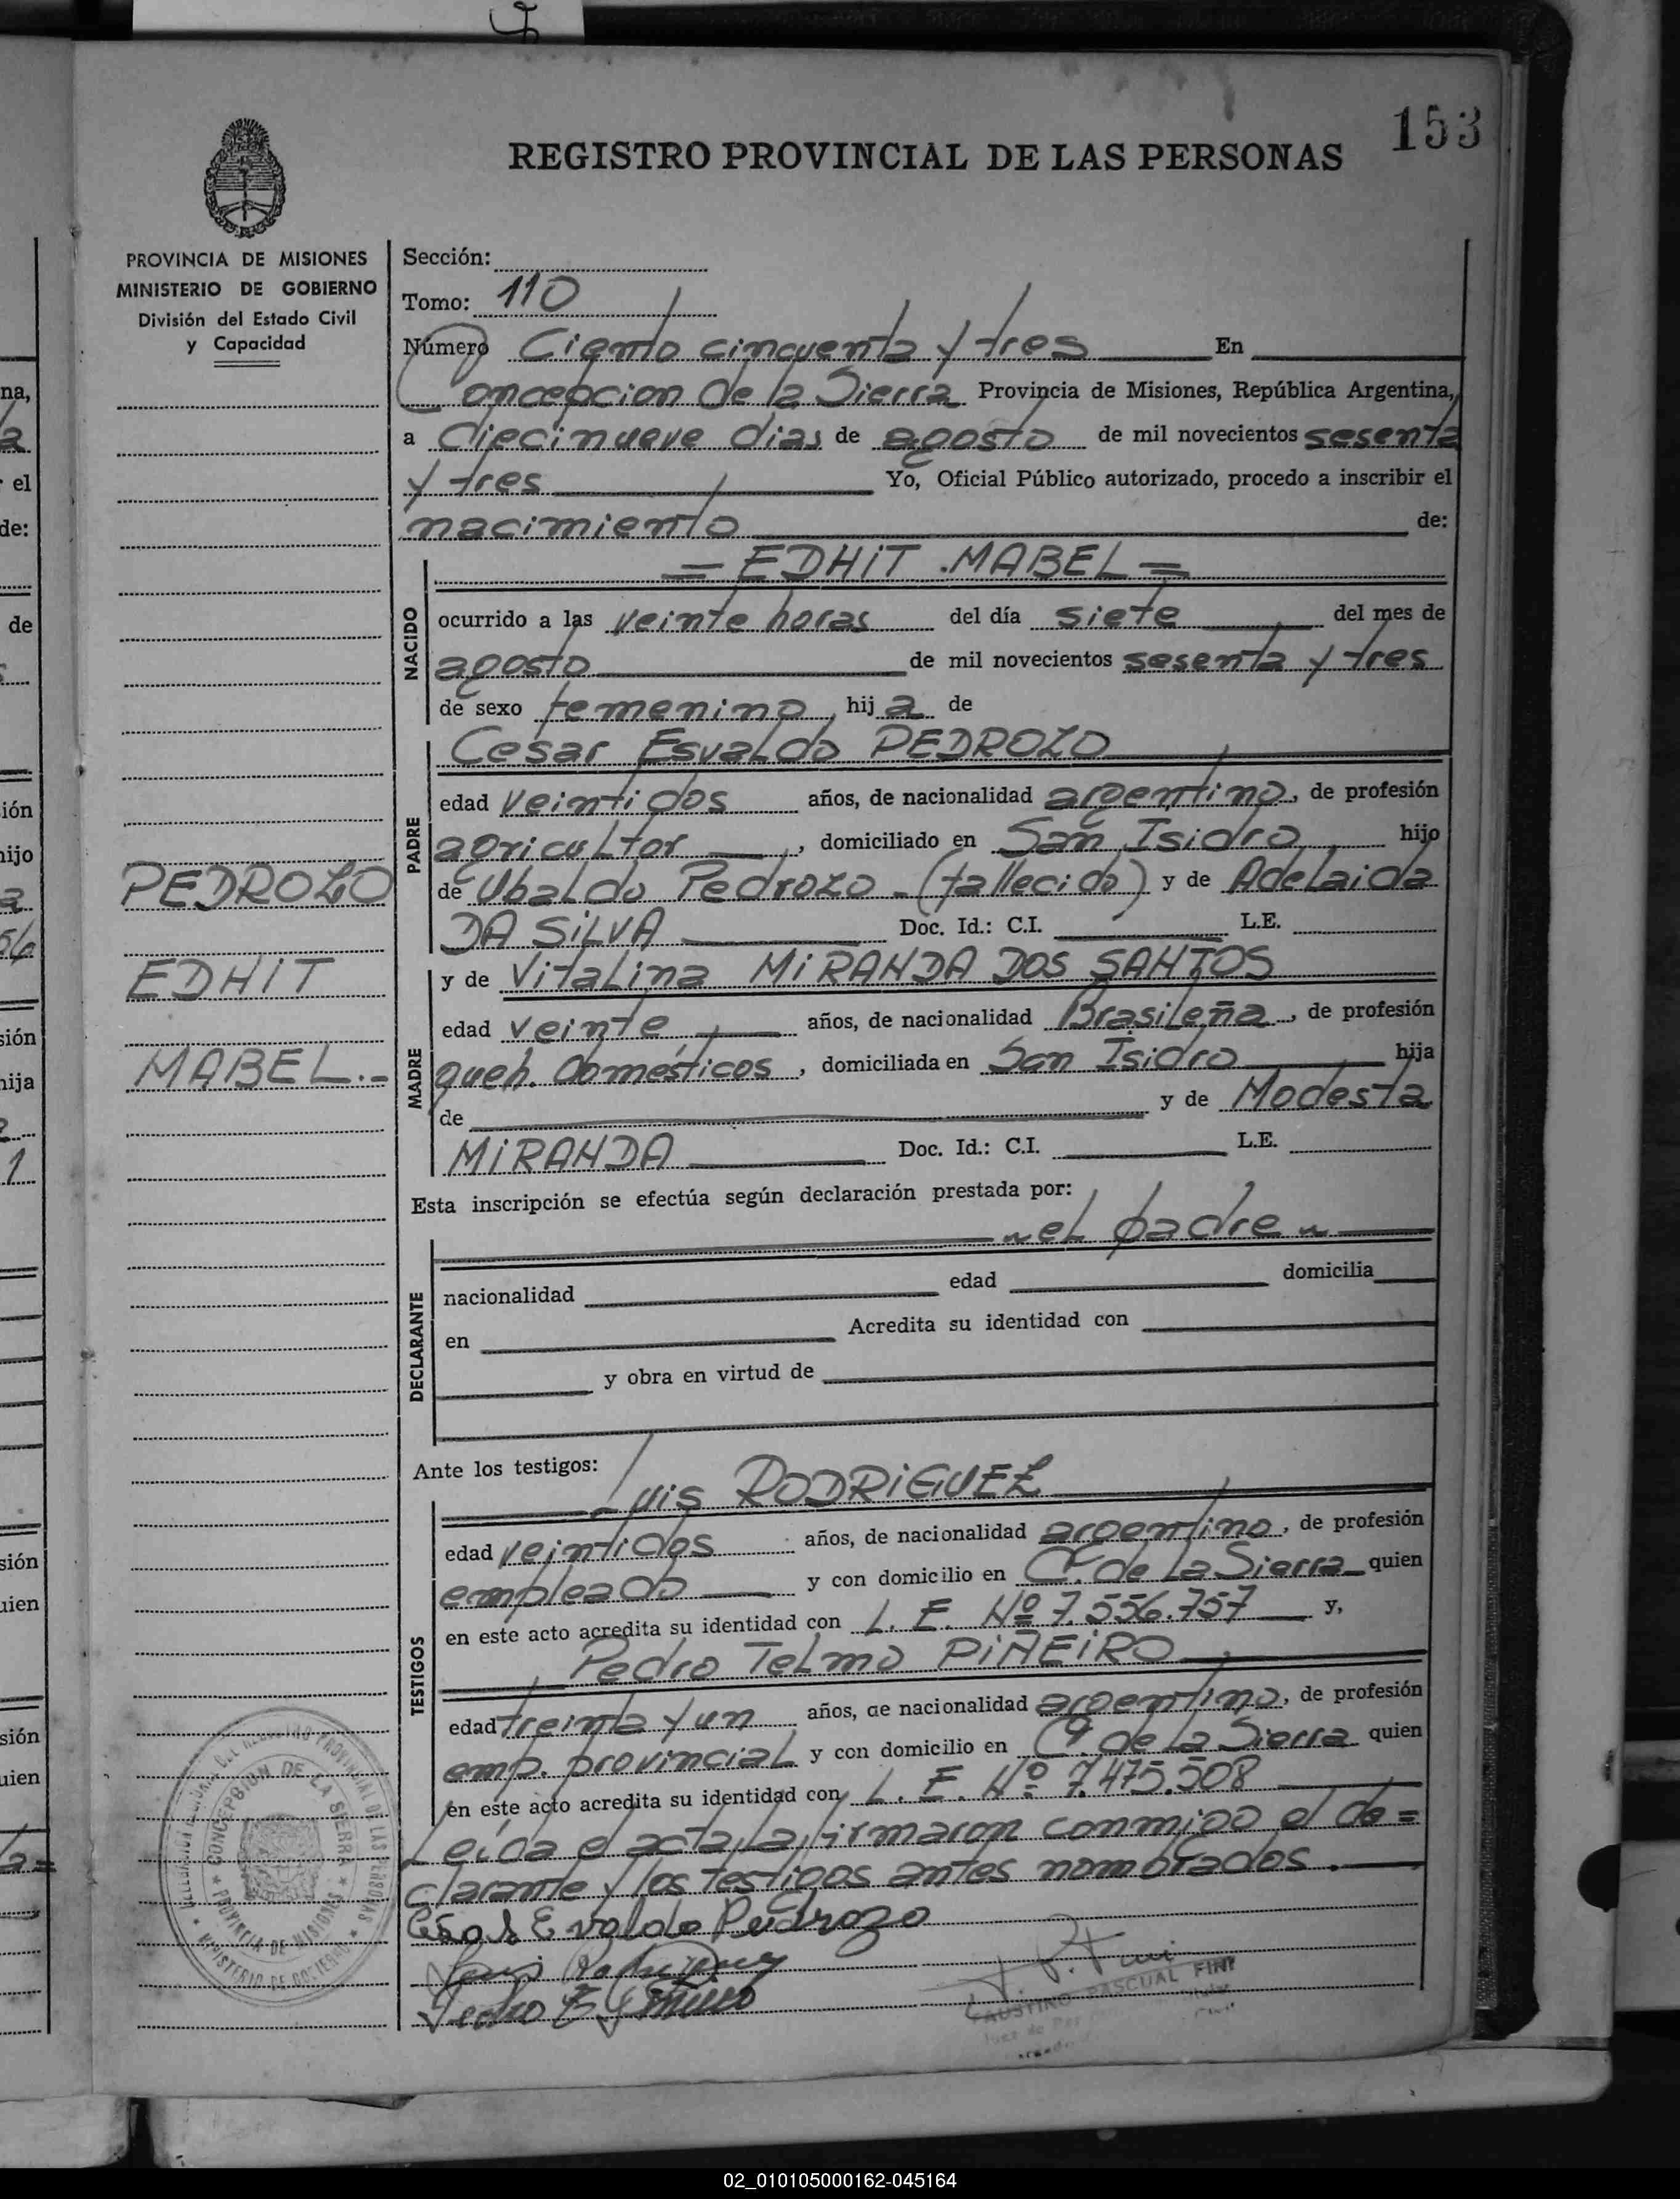 153
REGISTRO PROVINCIAL DE LAS PERSONAS
PROVINCIA DE MISIONES
MINISTERIO DE GOBIERNO
División del Estado Civil
y Capacidad
PEDROZO
EDHIT
MABEL.-
Sección:
Tomo: 110
Número Ciento cincuenta y tres En
Concepcion de la Sierra Provincia de Misiones, República Argentina,
a diecinueve dias de agosto de mil novecientos sesenta
y tres Yo, Oficial Público autorizado, procedo a inscribir el
nacimiento de:
= EDHIT MABEL =
NACIDO
ocurrido a las veinte horas del día siete del mes de
agosto de mil novecientos sesenta y tres
de sexo femenino, hij a de
Cesar Esvaldo PEDROZO
PADRE
edad veintidos años, de nacionalidad argentino, de profesión
agricultor, domiciliado en San Isidro hijo
de Ubaldo Pedrozo - (fallecido) y de Adelaida
DA SILVA Doc. Id.: C.I. L.E.
y de Vitalina MIRANDA DOS SANTOS
MADRE
edad veinte, años, de nacionalidad Brasileña, de profesión
queh. domésticos, domiciliada en San Isidro hija
de y de Modesta
MIRANDA Doc. Id.: C.I. L.E.
Esta inscripción se efectúa según declaración prestada por:
el padre
DECLARANTE
nacionalidad edad domicilia
en Acredita su identidad con
y obra en virtud de
Ante los testigos:
Luis RODRIGUEZ
TESTIGOS
edad veintidos años, de nacionalidad argentino, de profesión
empleado y con domicilio en C. de La Sierra quien
en este acto acredita su identidad con L. E. Nº 7.556.757 y,
Pedro Telmo PIÑEIRO
edad treinta y un años, de nacionalidad argentino, de profesión
emp. provincial y con domicilio en C. de La Sierra quien
en este acto acredita su identidad con L. E. Nº 7.475.508
Leida el acta, la firmaron conmigo el de=
clarante y los testigos antes nombrados.
Cesar Evaldo Pedrozo
FAUSTINO PASCUAL FINI
Juez de Paz
CONCEPCION DE LA SIERRA
PROVINCIA DE MISIONES
MINISTERIO DE GOBIERNO
02_010105000162-045164